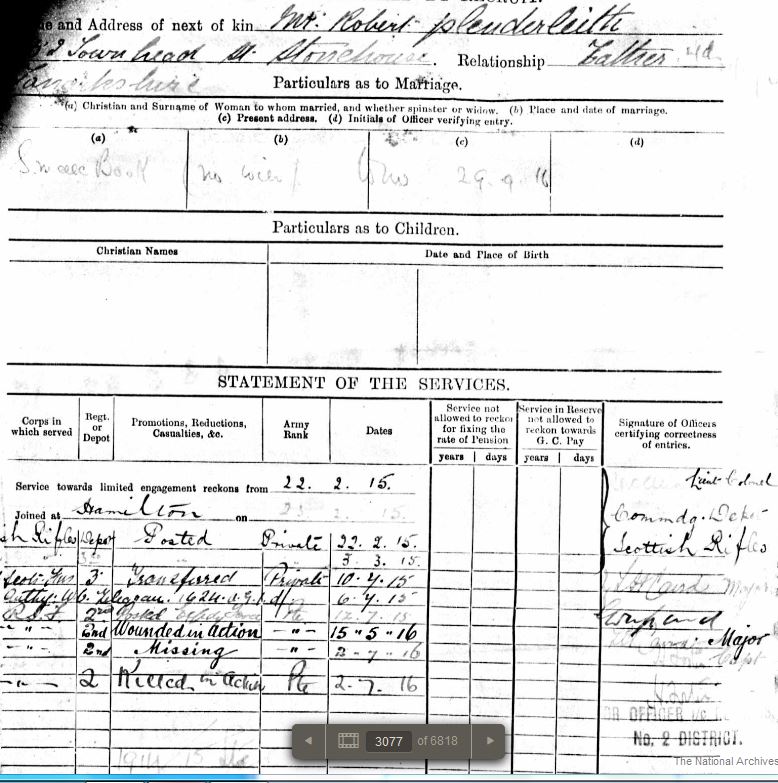 and Address of next of kin Mr. Robert Plenderleith
Townhead St. Stonehouse. Relationship Father
Lanarkshire
Particulars as to Marriage.
(a) Christian and Surname of Woman to whom married, and whether spinster or widow. (b) Place and date of marriage.
(c) Present address. (d) Initials of Officer verifying entry.
(a) (b) (c) (d)
Small Book no will 29.9.16
Particulars as to Children.
Christian Names Date and Place of Birth
STATEMENT OF THE SERVICES.
Corps in which served
Regt. or Depot
Promotions, Reductions, Casualties, &c.
Army Rank
Dates
Service not allowed to reckon for fixing the rate of Pension
years days
Service in Reserve not allowed to reckon towards G. C. Pay
years days
Signature of Officers certifying correctness of entries.
Service towards limited engagement reckons from 22. 2. 15.
Lieut Colonel
Joined at Hamilton on 2. 15.
Commdg. Depot
sh Rifles Depot Posted Private 22. 2. 15.
Scottish Rifles
3. 3. 15.
Scot. Fus 3 Transferred Private 10. 4. 15
Major
Authy. Telegram 1624 d/ 6. 4. 15
R.S.F. 2nd Posted
-"- 2nd Wounded in Action -"- 15"5"16
Major
-"- 2nd Missing -"- 2-7-16
Capt
-"- 2 Killed in Action Pte 2.7.16
OFFICER
No. 2 DISTRICT.
3077 of 6818
The National Archives